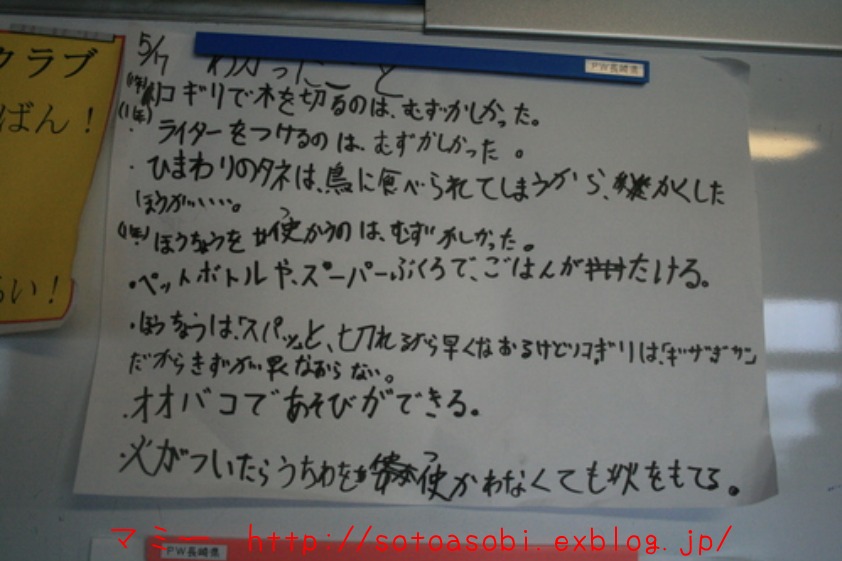 クラブ
ばん！
らい！
5/7 わかったこと
PW長崎県
(1年)ノコギリで木を切るのは、むずかしかった。
(1年)・ライターをつけるのは、むずかしかった。
・ひまわりのタネは、鳥に食べられてしまうから、かくした
ほうがいいい。
(1年)ほうちょうを使かうのは、むずかしかった。
・ペットボトルや、スーパーぶくろで、ごはんがたける。
・ほうちょうは、「スパッ」と、切れるから早くなおるけどノコギリは、「ギザギザ」
だからきずが早くなおらない。
・オオバコであそびができる。
・火がついたらうちわを使かわなくても火をもてる。
マミー http://sotoasobi.exblog.jp/
PW長崎県